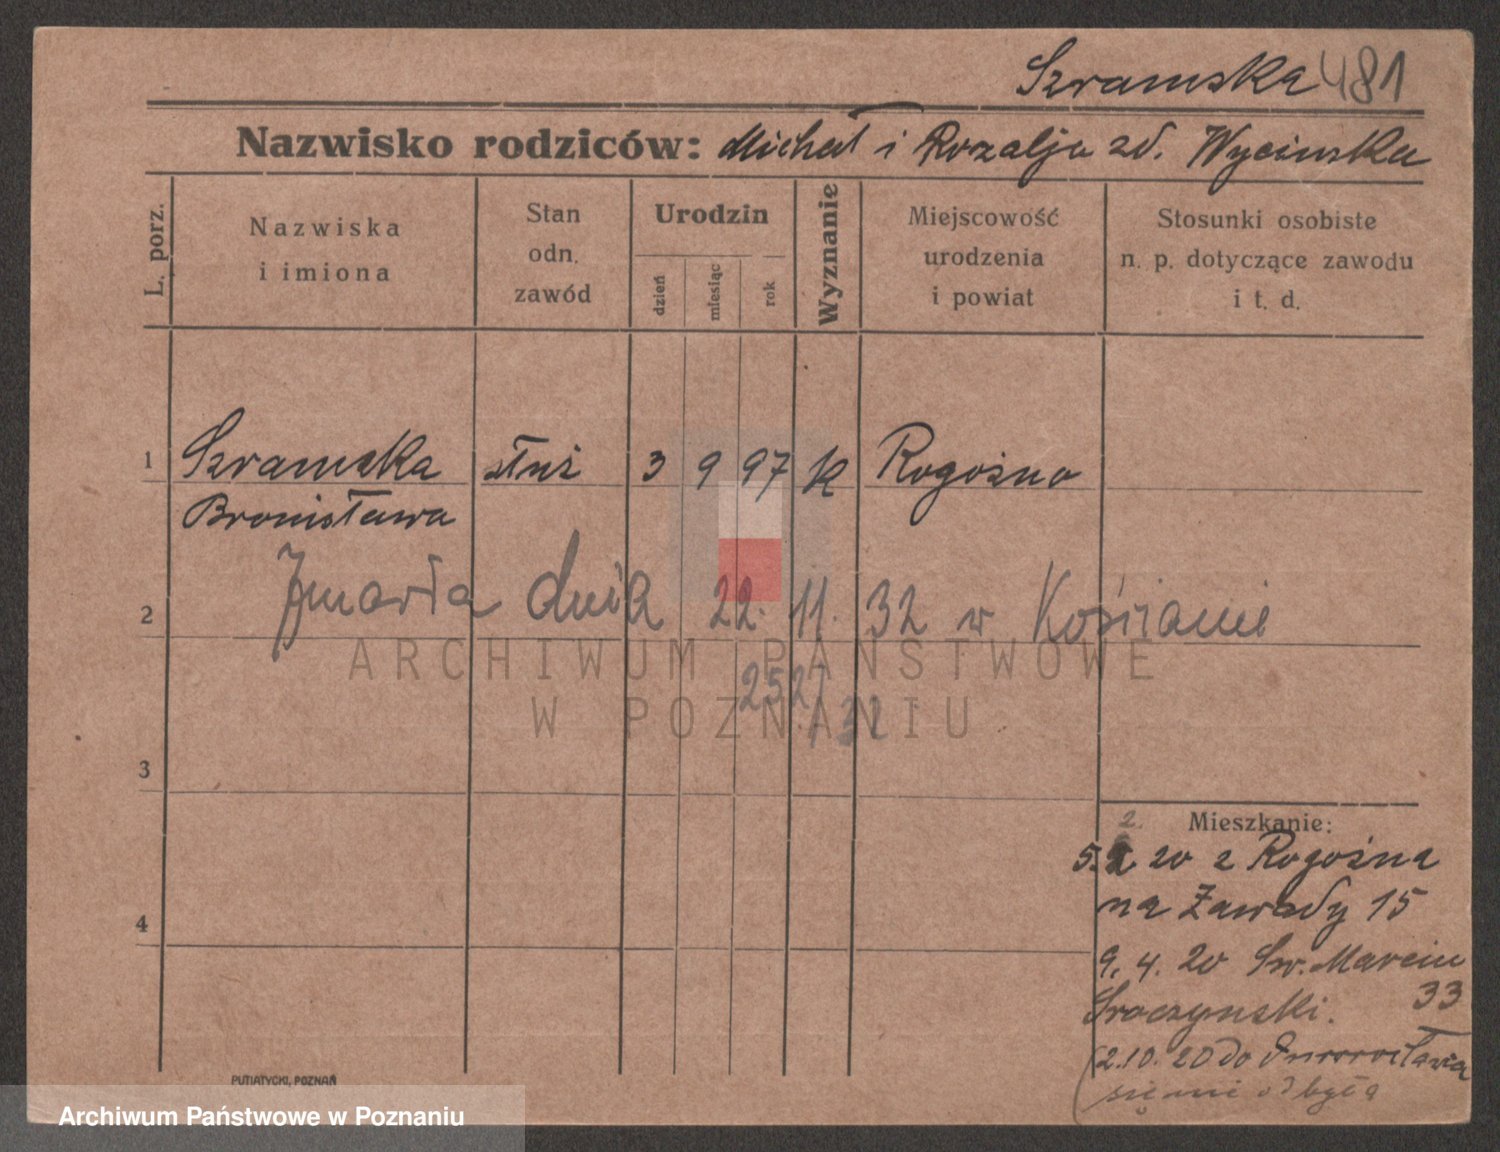 Szramska 481
Nazwisko rodziców: Michał i Rozalja zd. Wycinska
L. porz.
Nazwiska
i imiona
Stan
odn.
zawód
Urodzin
dzień
miesiąc
rok
Wyznanie
Miejscowość
urodzenia
i powiat
Stosunki osobiste
n. p. dotyczące zawodu
i t. d.
1 Szramska służ 3 9 97 k Rogoźno
Bronisława
2 Zmarła dnia 22. 11. 32 w Kościanie
ARCHIWUM PAŃSTWOWE
2527
W POZNANIU
/32
3
4
Mieszkanie:
2.
5. 2 20 z Rogoźna
na Zawady 15
9. 4. 20 Św. Marcin
33
Sroczynski.
(2.10.20 do Inowrocławia
się nie odbyła
PUTIATYCKI, POZNAŃ
Archiwum Państwowe w Poznaniu